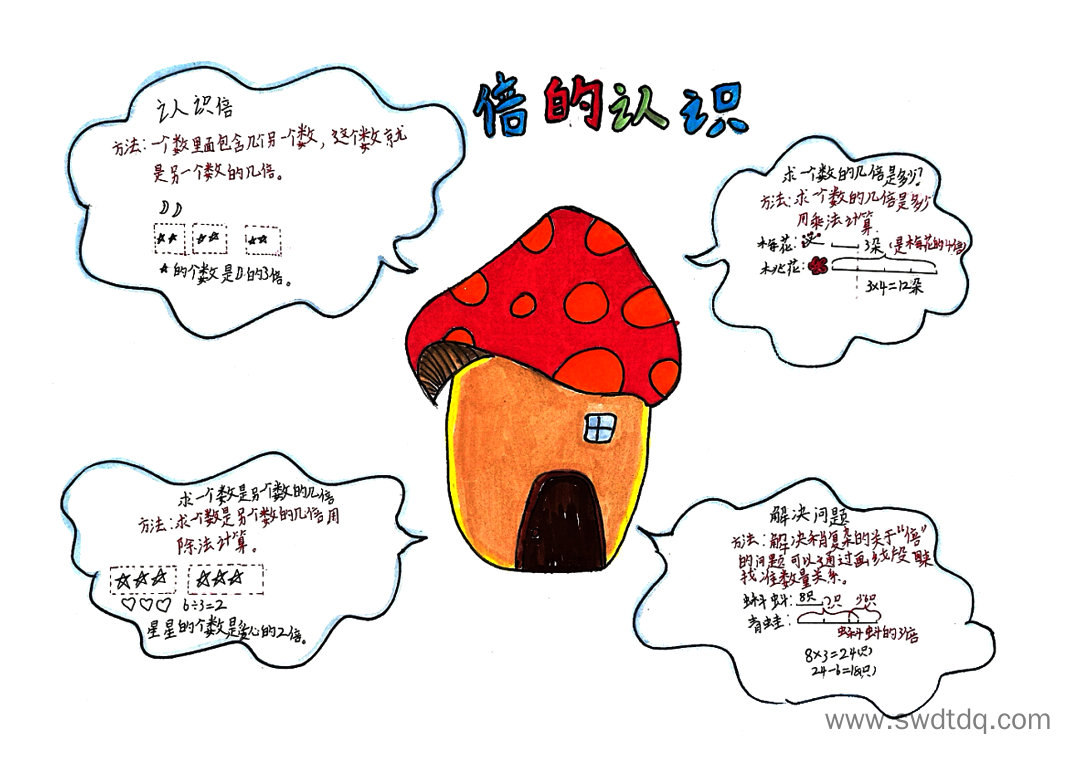 倍的认识
认识倍
方法:一个数里面包含几个另一个数,这个数就
是另一个数的几倍。
★的个数是D的3倍。
求一个数的几倍是多少?
方法:求一个数的几倍是多少
用乘法计算
梅花: 3朵(是梅花的4倍)
桃花:
3×4=12朵
求一个数是另一个数的几倍
方法:求一个数是另一个数的几倍用
除法计算。
6÷3=2
星星的个数是爱心的2倍。
解决问题
方法:解决稍复杂的关于“倍”
的问题可以通过画线段
找准数量关系。
蝌蚪: 8只 ?只 少6只
青蛙:
蝌蚪的3倍
8×3=24(只)
24-6=18(只)
www.swdtdq.com